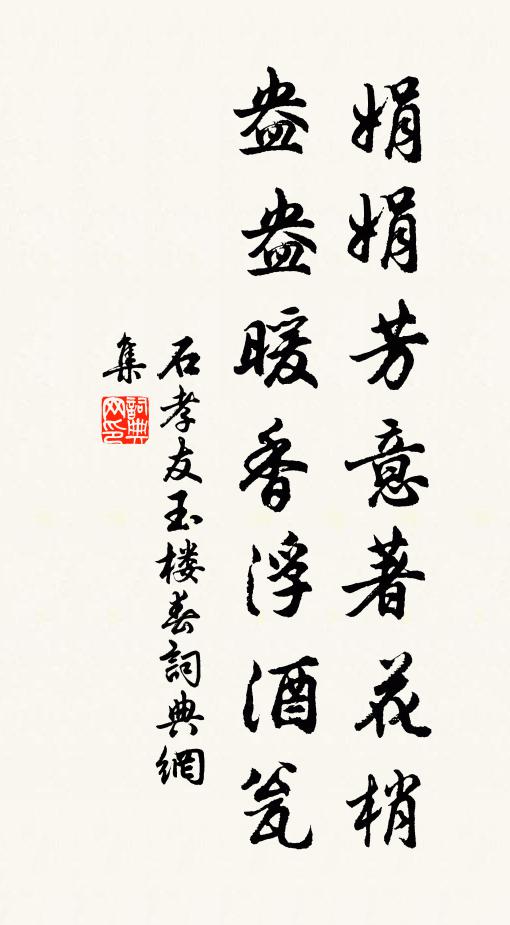 娟娟芳意著花梢
盎盎暖香浮酒瓮
石孝友玉楼春詞典網
集
詞典网印